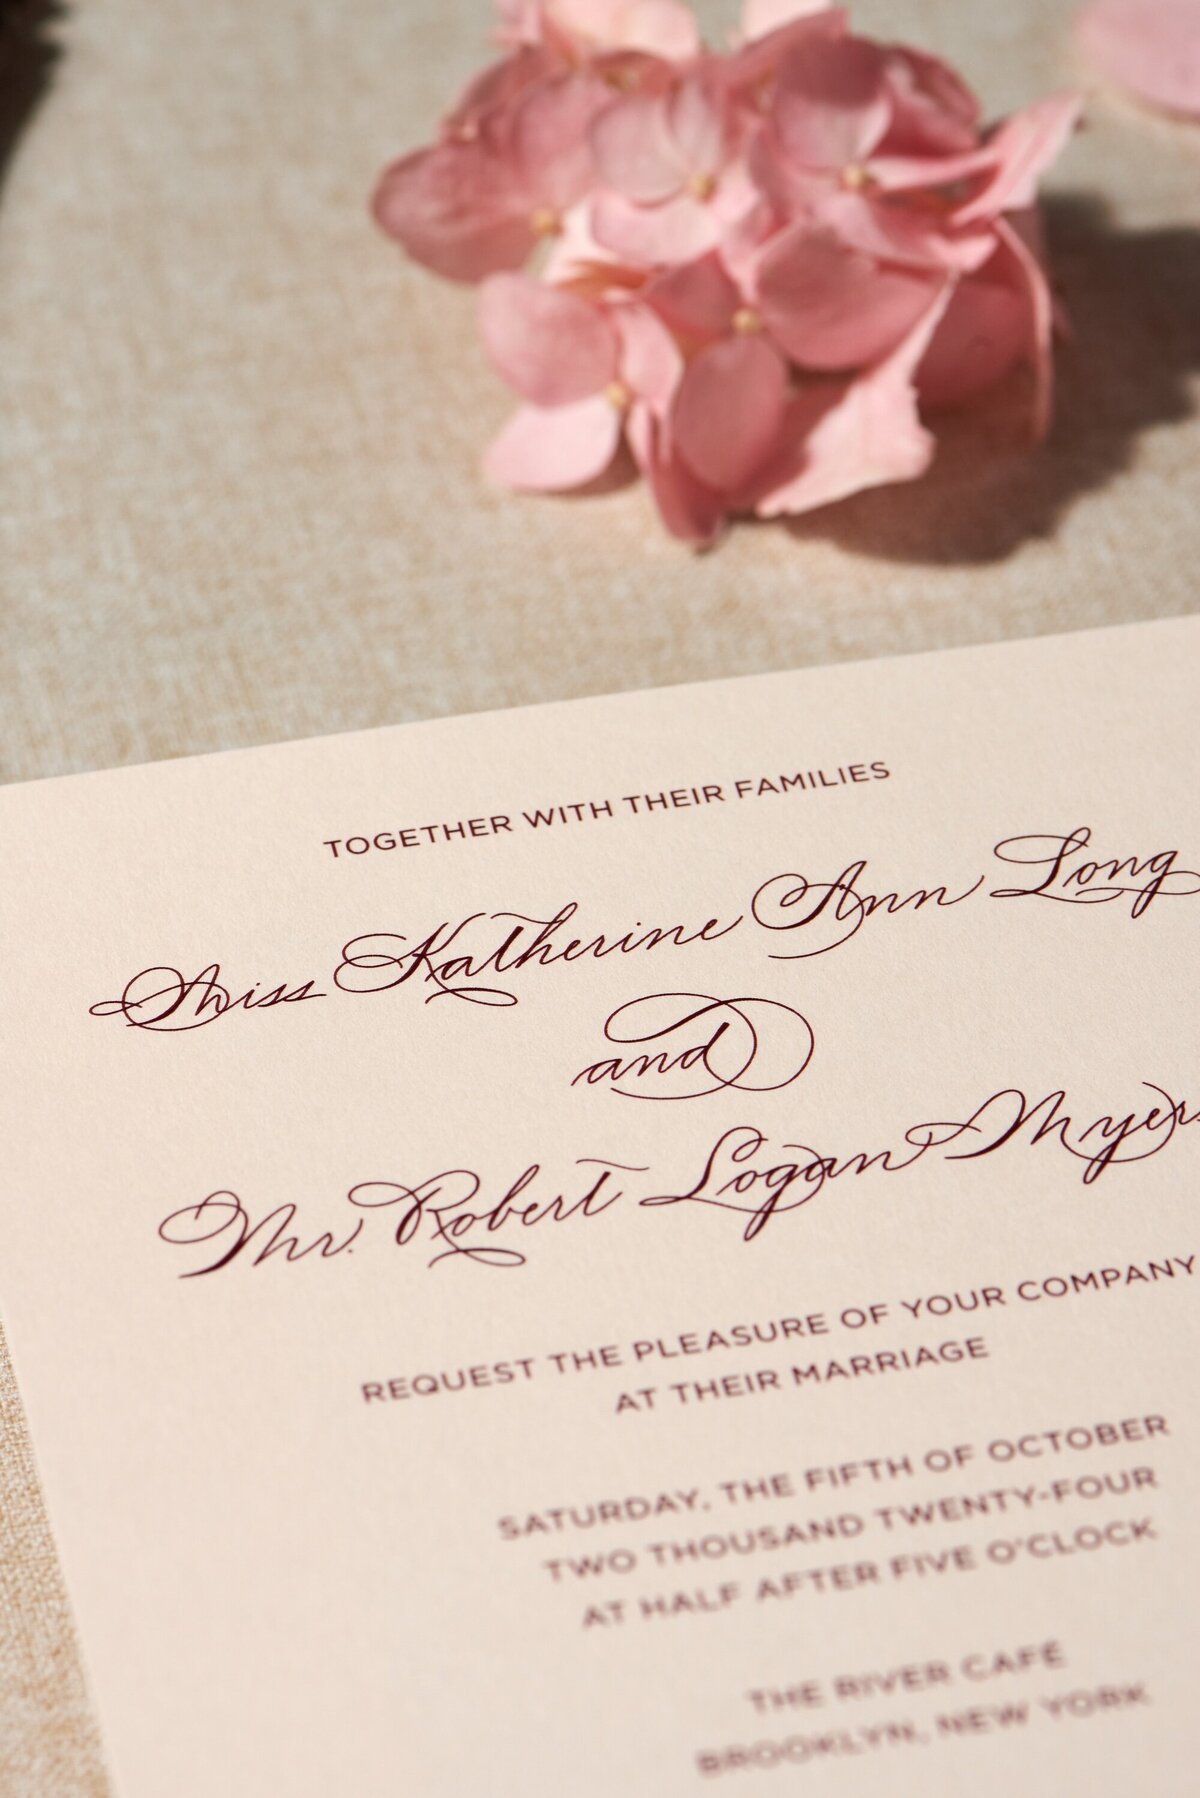 TOGETHER WITH THEIR FAMILIES
Miss Katherine Ann Long
and
Mr. Robert Logan Myers
REQUEST THE PLEASURE OF YOUR COMPANY
AT THEIR MARRIAGE
SATURDAY, THE FIFTH OF OCTOBER
TWO THOUSAND TWENTY-FOUR
AT HALF AFTER FIVE O'CLOCK
THE RIVER CAFÉ
BROOKLYN, NEW YORK